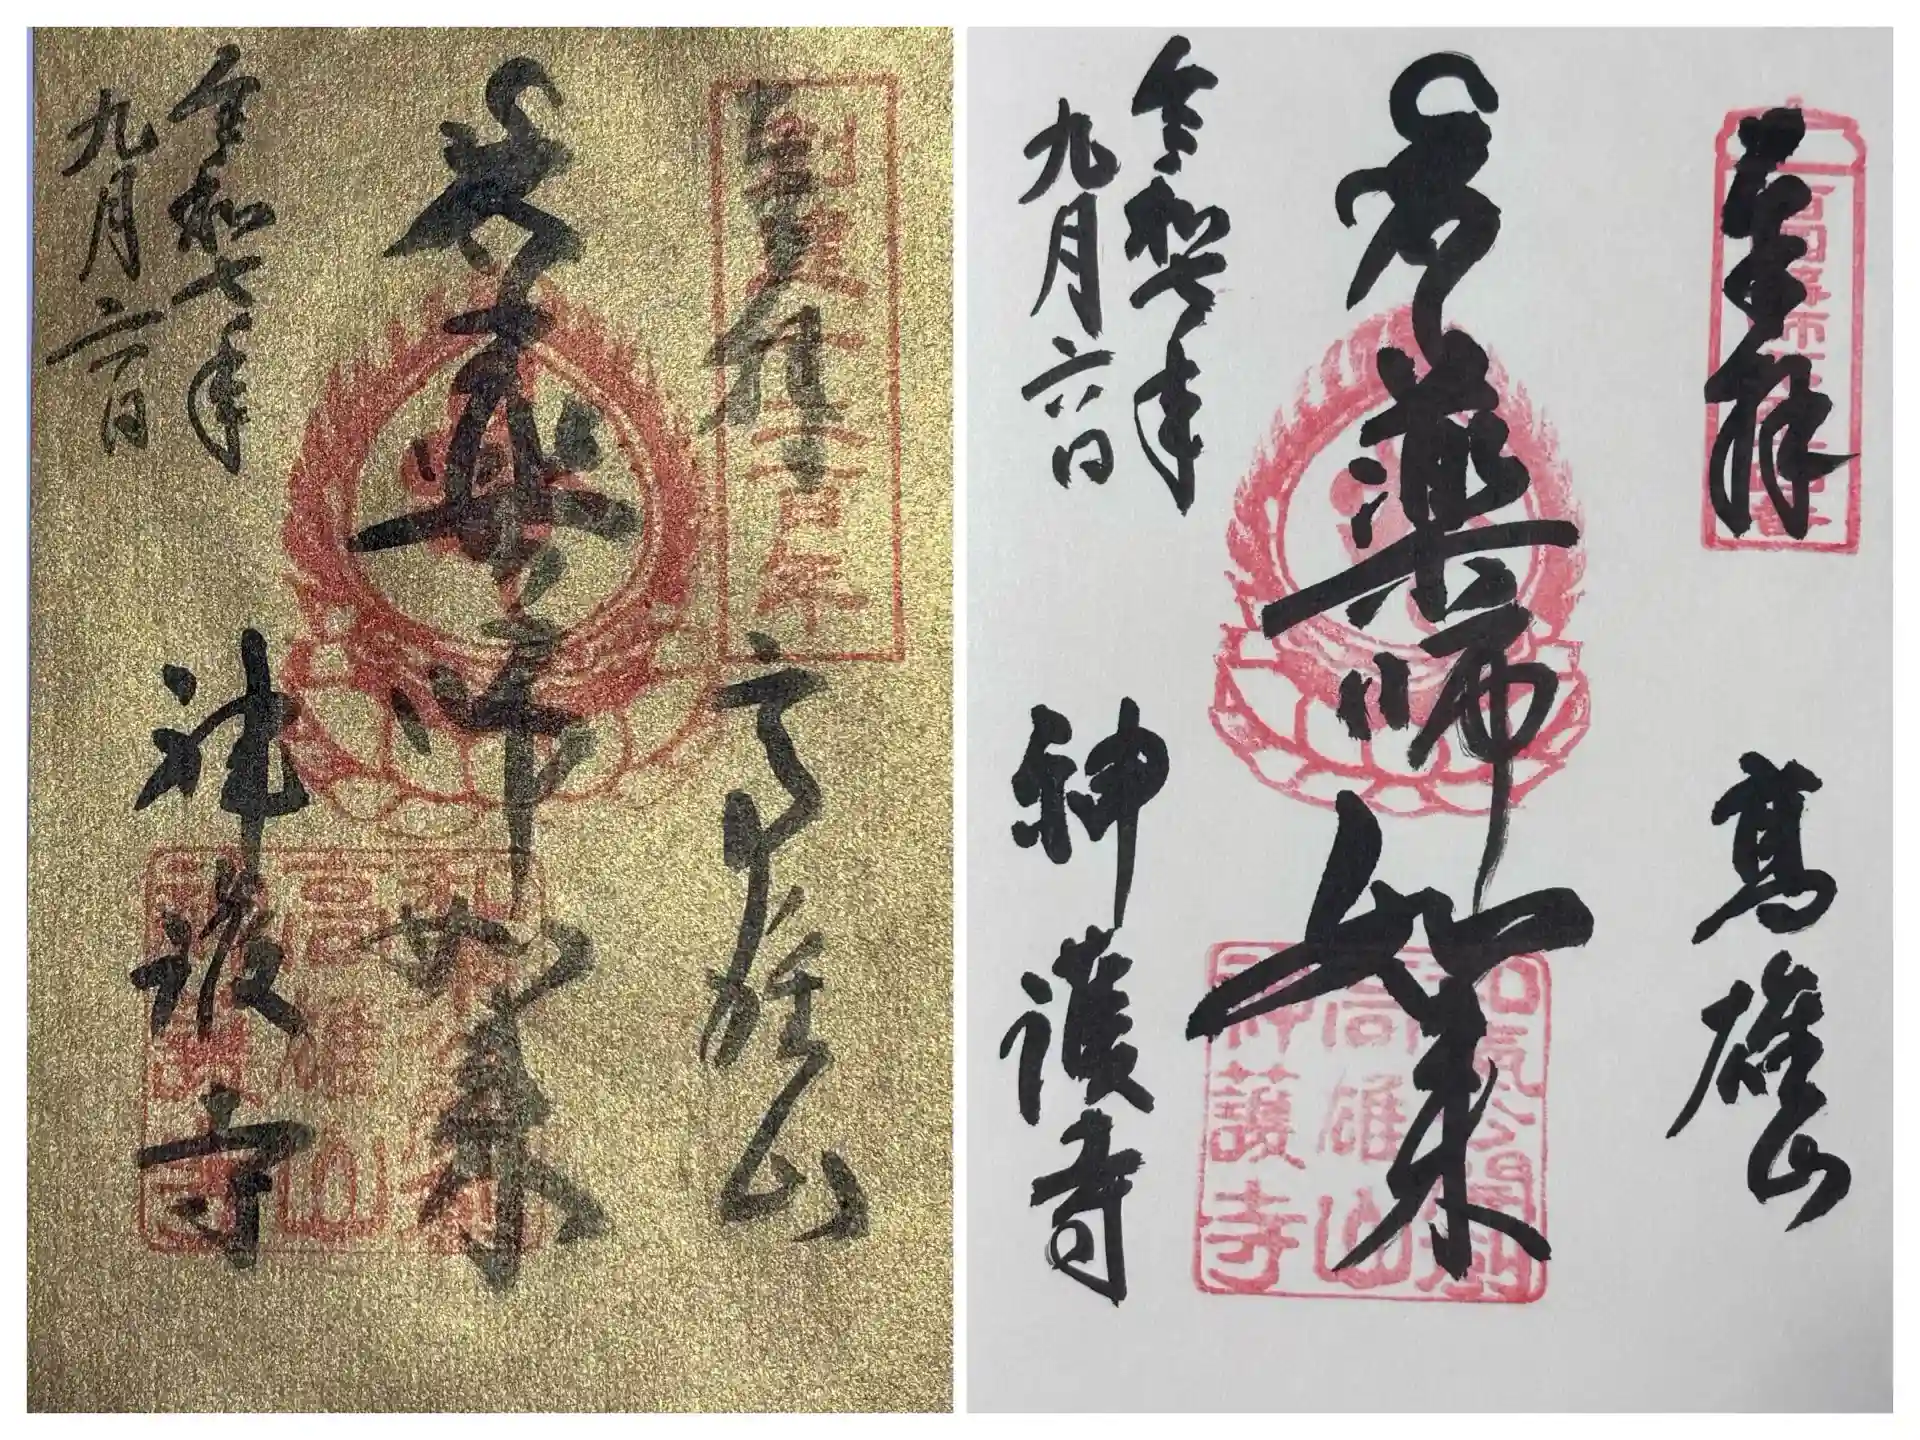 奉拝
高雄山
薬師如来
令和七年
九月六日
神護寺
創建千二百年
和気公霊剏
高雄山
神護寺
奉拝
高雄山
薬師如来
令和七年
九月六日
神護寺
和気公霊剏
高雄山
神護寺